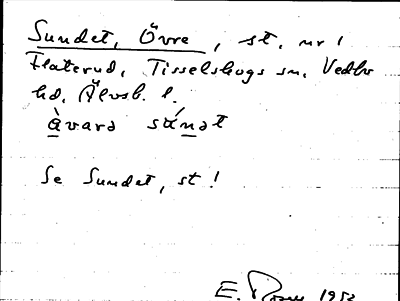 Sundet, Övre, st. nr 1
Flaterud, Tisselskogs sn, Vedbo
hd, Älvsb. l.
àvarə súnət
Se Sundet, st!
E. 1952